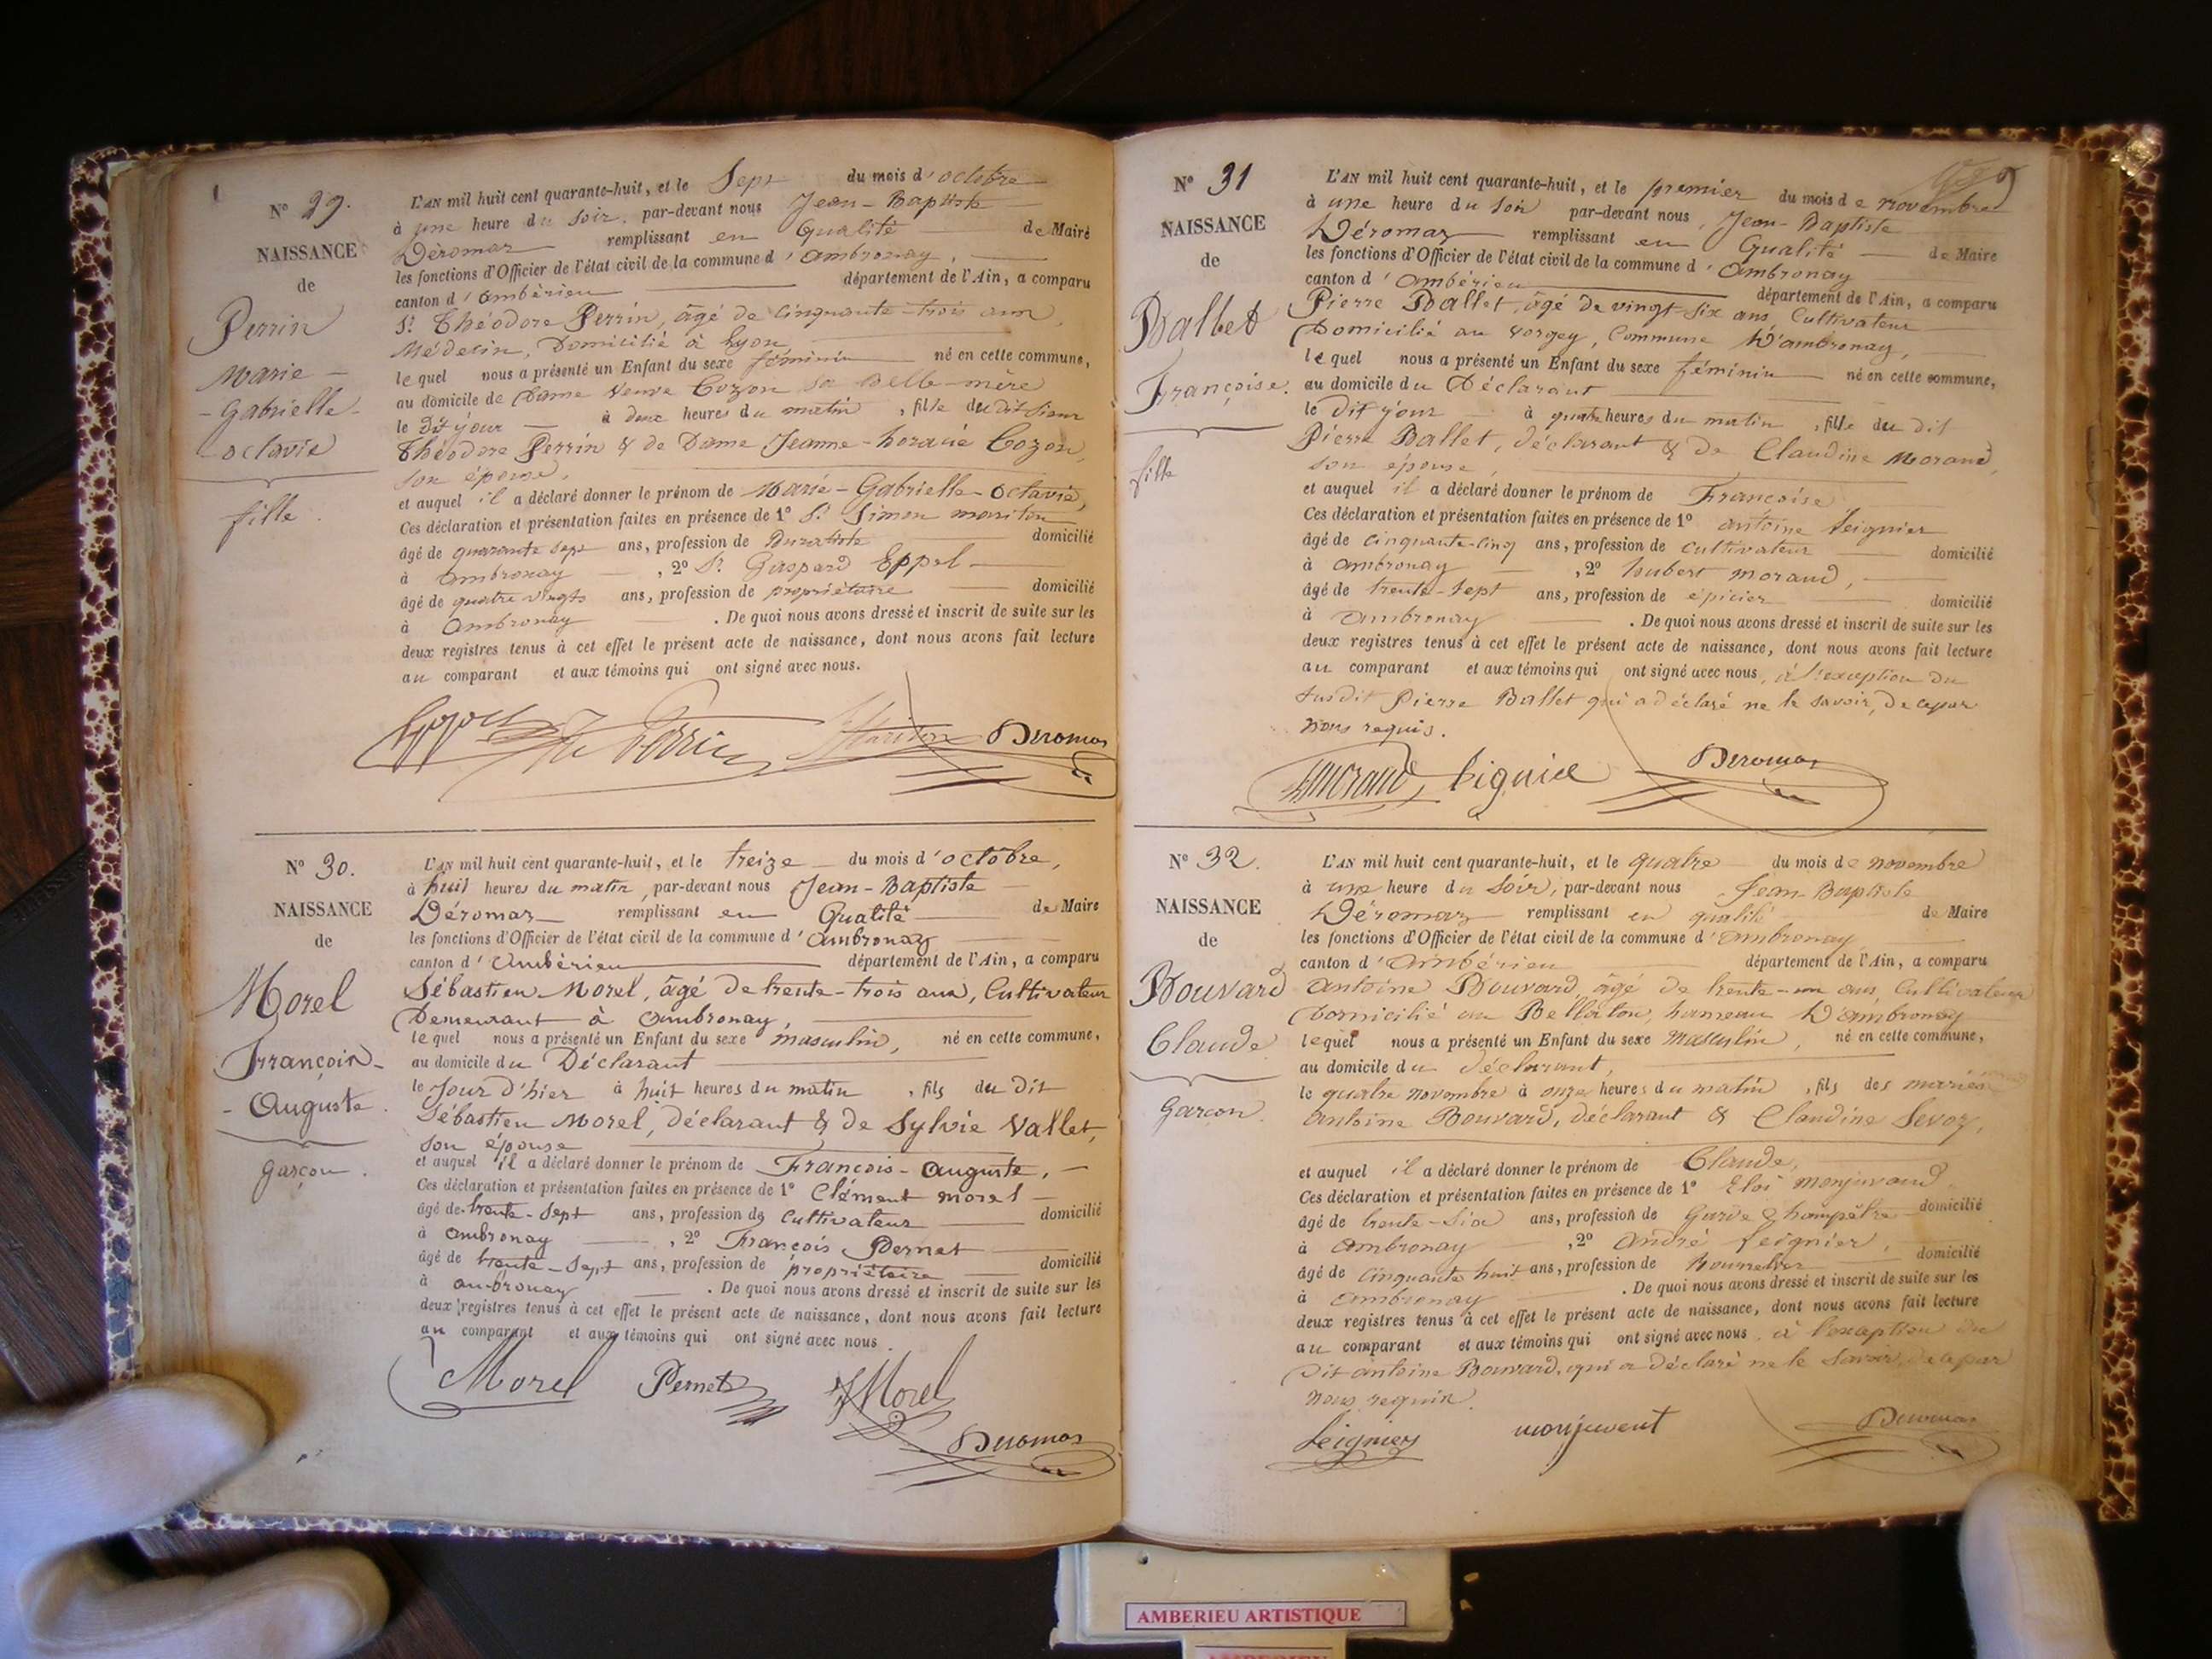 N° 29.
NAISSANCE
de
Perrin
Marie -
- Gabrielle -
octavie
fille.
L'AN mil huit cent quarante-huit, et le Sept du mois d'octobre
à une heure du soir, par-devant nous Jean-Baptiste
Déromas remplissant en Qualité de Maire
les fonctions d'Officier de l'état civil de la commune d'ambronay,
canton d'ambérieu département de l'Ain, a comparu
Sr. Théodore Perrin, âgé de cinquante-trois ans,
Médecin, Domicilié à Lyon,
lequel nous a présenté un Enfant du sexe féminin né en cette commune,
au domicile de Dame Veuve Cozon sa Belle-mère
le dit jour à deux heures du matin, fille du dit Sieur
Théodore Perrin & de Dame Jeanne-horacie Cozon,
son épouse,
et auquel il a déclaré donner le prénom de Marie-Gabrielle-Octavie,
Ces déclaration et présentation faites en présence de 1° Sr. Simon mariton
âgé de quarante sept ans, profession de domicilié
à ambronay, 2° Sr. Gaspard Eppel
âgé de quatre vingts ans, profession de propriétaire domicilié
à Ambronay. De quoi nous avons dressé et inscrit de suite sur les
deux registres tenus à cet effet le présent acte de naissance, dont nous avons fait lecture
au comparant et aux témoins qui ont signé avec nous.
Perrin Mariton Deromas
N° 30.
NAISSANCE
de
Morel
François -
- Auguste.
garçon.
L'AN mil huit cent quarante-huit, et le treize du mois d'octobre,
à huit heures du matin, par-devant nous Jean-Baptiste
Déromas remplissant en Qualité de Maire
les fonctions d'Officier de l'état civil de la commune d'Ambronay
canton d'Ambérieu département de l'Ain, a comparu
Sébastien Morel, âgé de trente-trois ans, Cultivateur
Demeurant à Ambronay,
lequel nous a présenté un Enfant du sexe masculin, né en cette commune,
au domicile du Déclarant
le Jour d'hier à huit heures du matin, fils du Dit
Sébastien Morel, déclarant & de Sylvie Vallet,
son épouse
et auquel il a déclaré donner le prénom de François-Auguste,
Ces déclaration et présentation faites en présence de 1° Clément morel
âgé de trente-sept ans, profession de Cultivateur domicilié
à Ambronay, 2° François Pernet
âgé de trente-sept ans, profession de propriétaire domicilié
à ambronay. De quoi nous avons dressé et inscrit de suite sur les
deux registres tenus à cet effet le présent acte de naissance, dont nous avons fait lecture
au comparant et aux témoins qui ont signé avec nous
Morel Pernet Morel
Deromas
N° 31
NAISSANCE
de
Ballet
Françoise.
fille
L'AN mil huit cent quarante-huit, et le premier du mois de novembre
à une heure du soir par-devant nous, Jean-Baptiste
Déromas remplissant en Qualité de Maire
les fonctions d'Officier de l'état civil de la commune d'Ambronay
canton d'Ambérieu département de l'Ain, a comparu
Pierre Ballet, âgé de vingt-six ans, Cultivateur
Domicilié au Vorgey, Commune D'ambronay,
lequel nous a présenté un Enfant du sexe féminin né en cette commune,
au domicile du Déclarant
le dit jour à quatre heures du matin, fille du dit
Pierre Ballet, déclarant & de Claudine Morand,
son épouse,
et auquel il a déclaré donner le prénom de Françoise
Ces déclaration et présentation faites en présence de 1° antoine Leignier
âgé de cinquante-cinq ans, profession de cultivateur domicilié
à ambronay, 2° hubert morand,
âgé de trente-sept ans, profession de épicier domicilié
à Ambronay. De quoi nous avons dressé et inscrit de suite sur les
deux registres tenus à cet effet le présent acte de naissance, dont nous avons fait lecture
au comparant et aux témoins qui ont signé avec nous, à l'exception du
susdit Pierre Ballet qui a déclaré ne le savoir, de ce par
nous requis.
morand, Deromas
N° 32.
NAISSANCE
de
Bouvard
Claude
garçon.
L'AN mil huit cent quarante-huit, et le quatre du mois de novembre
à une heure du soir, par-devant nous Jean-Baptiste
Déromas remplissant en qualité de Maire
les fonctions d'Officier de l'état civil de la commune d'Ambronay
canton d'Ambérieu département de l'Ain, a comparu
Antoine Bouvard, âgé de trente-un ans, Cultivateur
Domicilié au Bellaton, hameau D'ambronay
lequel nous a présenté un Enfant du sexe Masculin, né en cette commune,
au domicile du déclarant,
le quatre novembre à onze heures du matin, fils des mariés
Antoine Bouvard, déclarant & Claudine Sevoz,
et auquel il a déclaré donner le prénom de Claude,
Ces déclaration et présentation faites en présence de 1° Eloi monjuvand,
âgé de trente-six ans, profession de Garde Champêtre domicilié
à Ambronay, 2° André Leignier,
âgé de cinquante huit ans, profession de domicilié
à Ambronay. De quoi nous avons dressé et inscrit de suite sur les
deux registres tenus à cet effet le présent acte de naissance, dont nous avons fait lecture
au comparant et aux témoins qui ont signé avec nous, à l'exception du
Dit Antoine Bouvard, qui a déclaré ne le savoir, de ce par
nous requis
Leignier monjuvent Deromas
AMBERIEU ARTISTIQUE
AMBERIEU